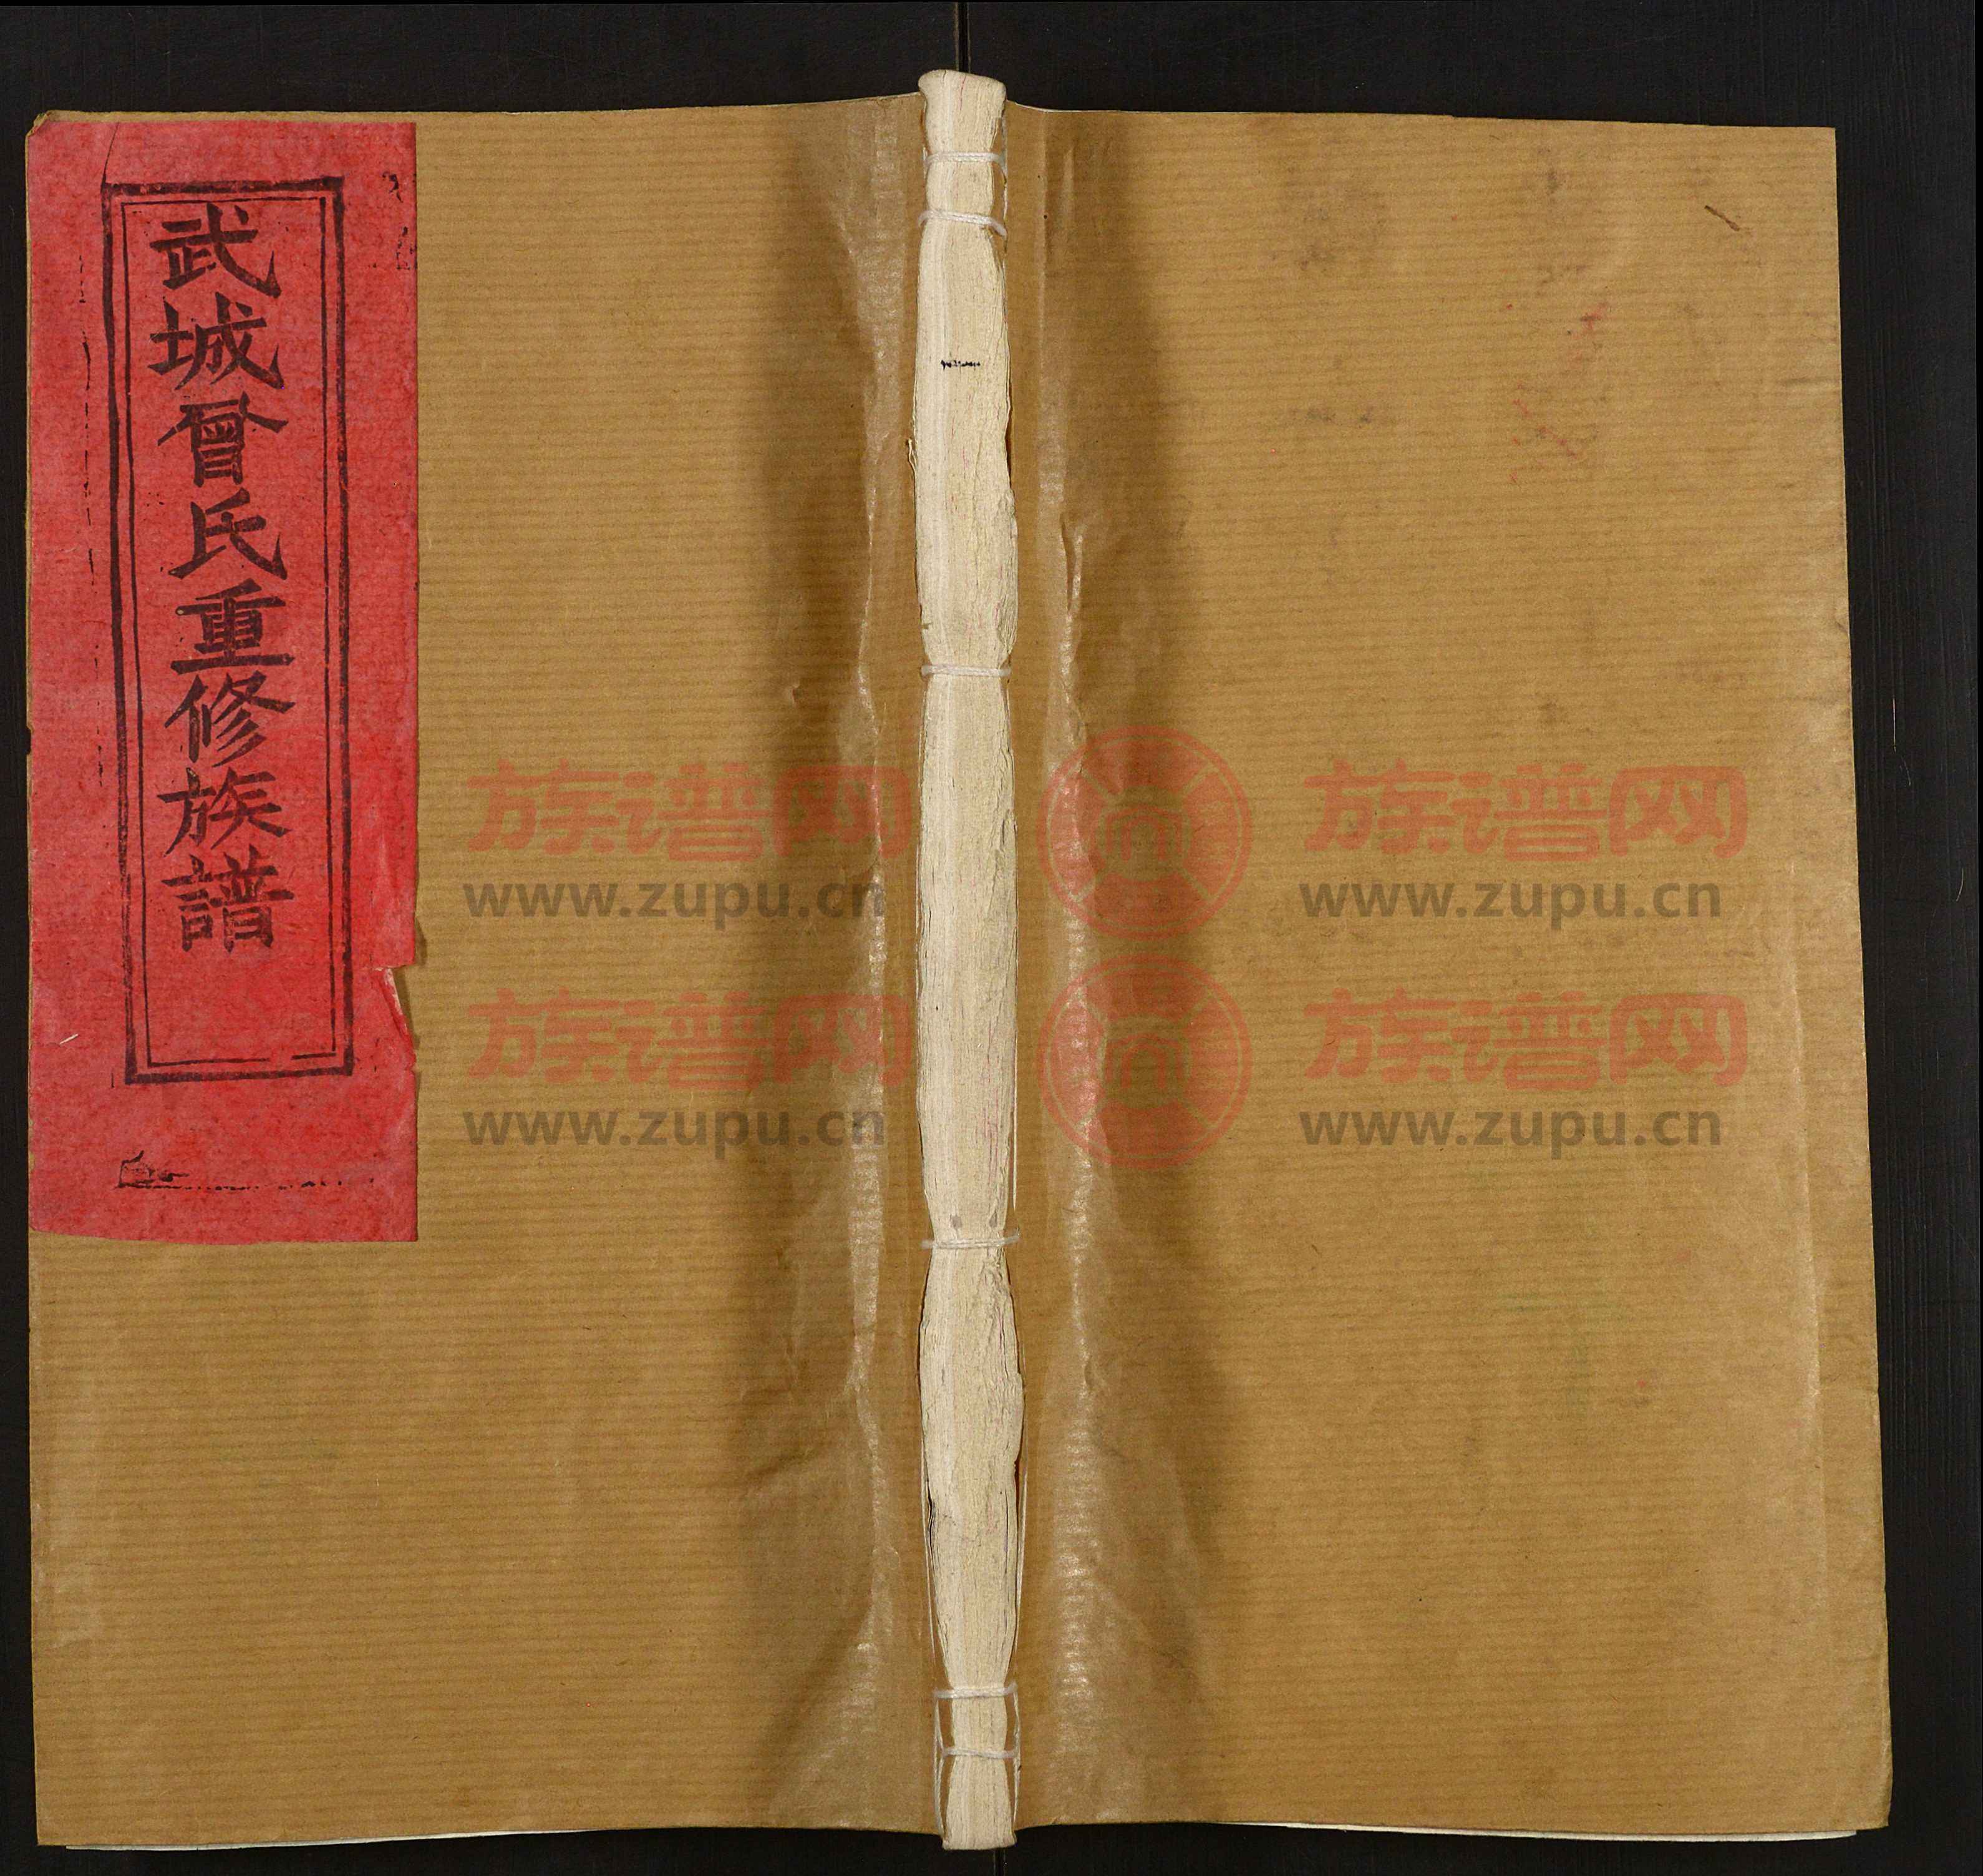 武城曾氏重修族譜
族谱网 族谱网
www.zupu.cn www.zupu.cn
族谱网 族谱网
www.zupu.cn www.zupu.cn